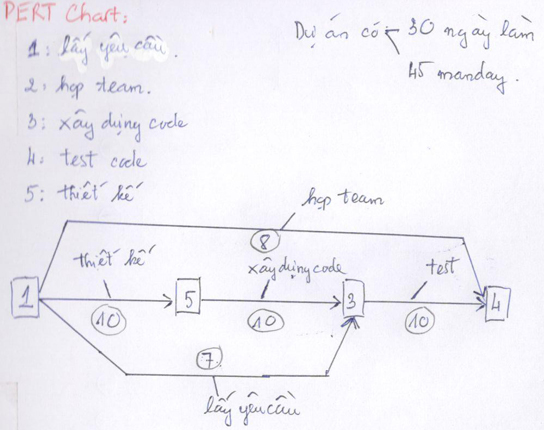 PERT Chart:
1: lấy yêu cầu.
2: họp team.
3: xây dựng code
4: test code
5: thiết kế
Dự án có 30 ngày làm
45 manday.
họp team
8
thiết kế
xây dựng code
test
1
5
3
4
10
10
10
7
lấy yêu cầu